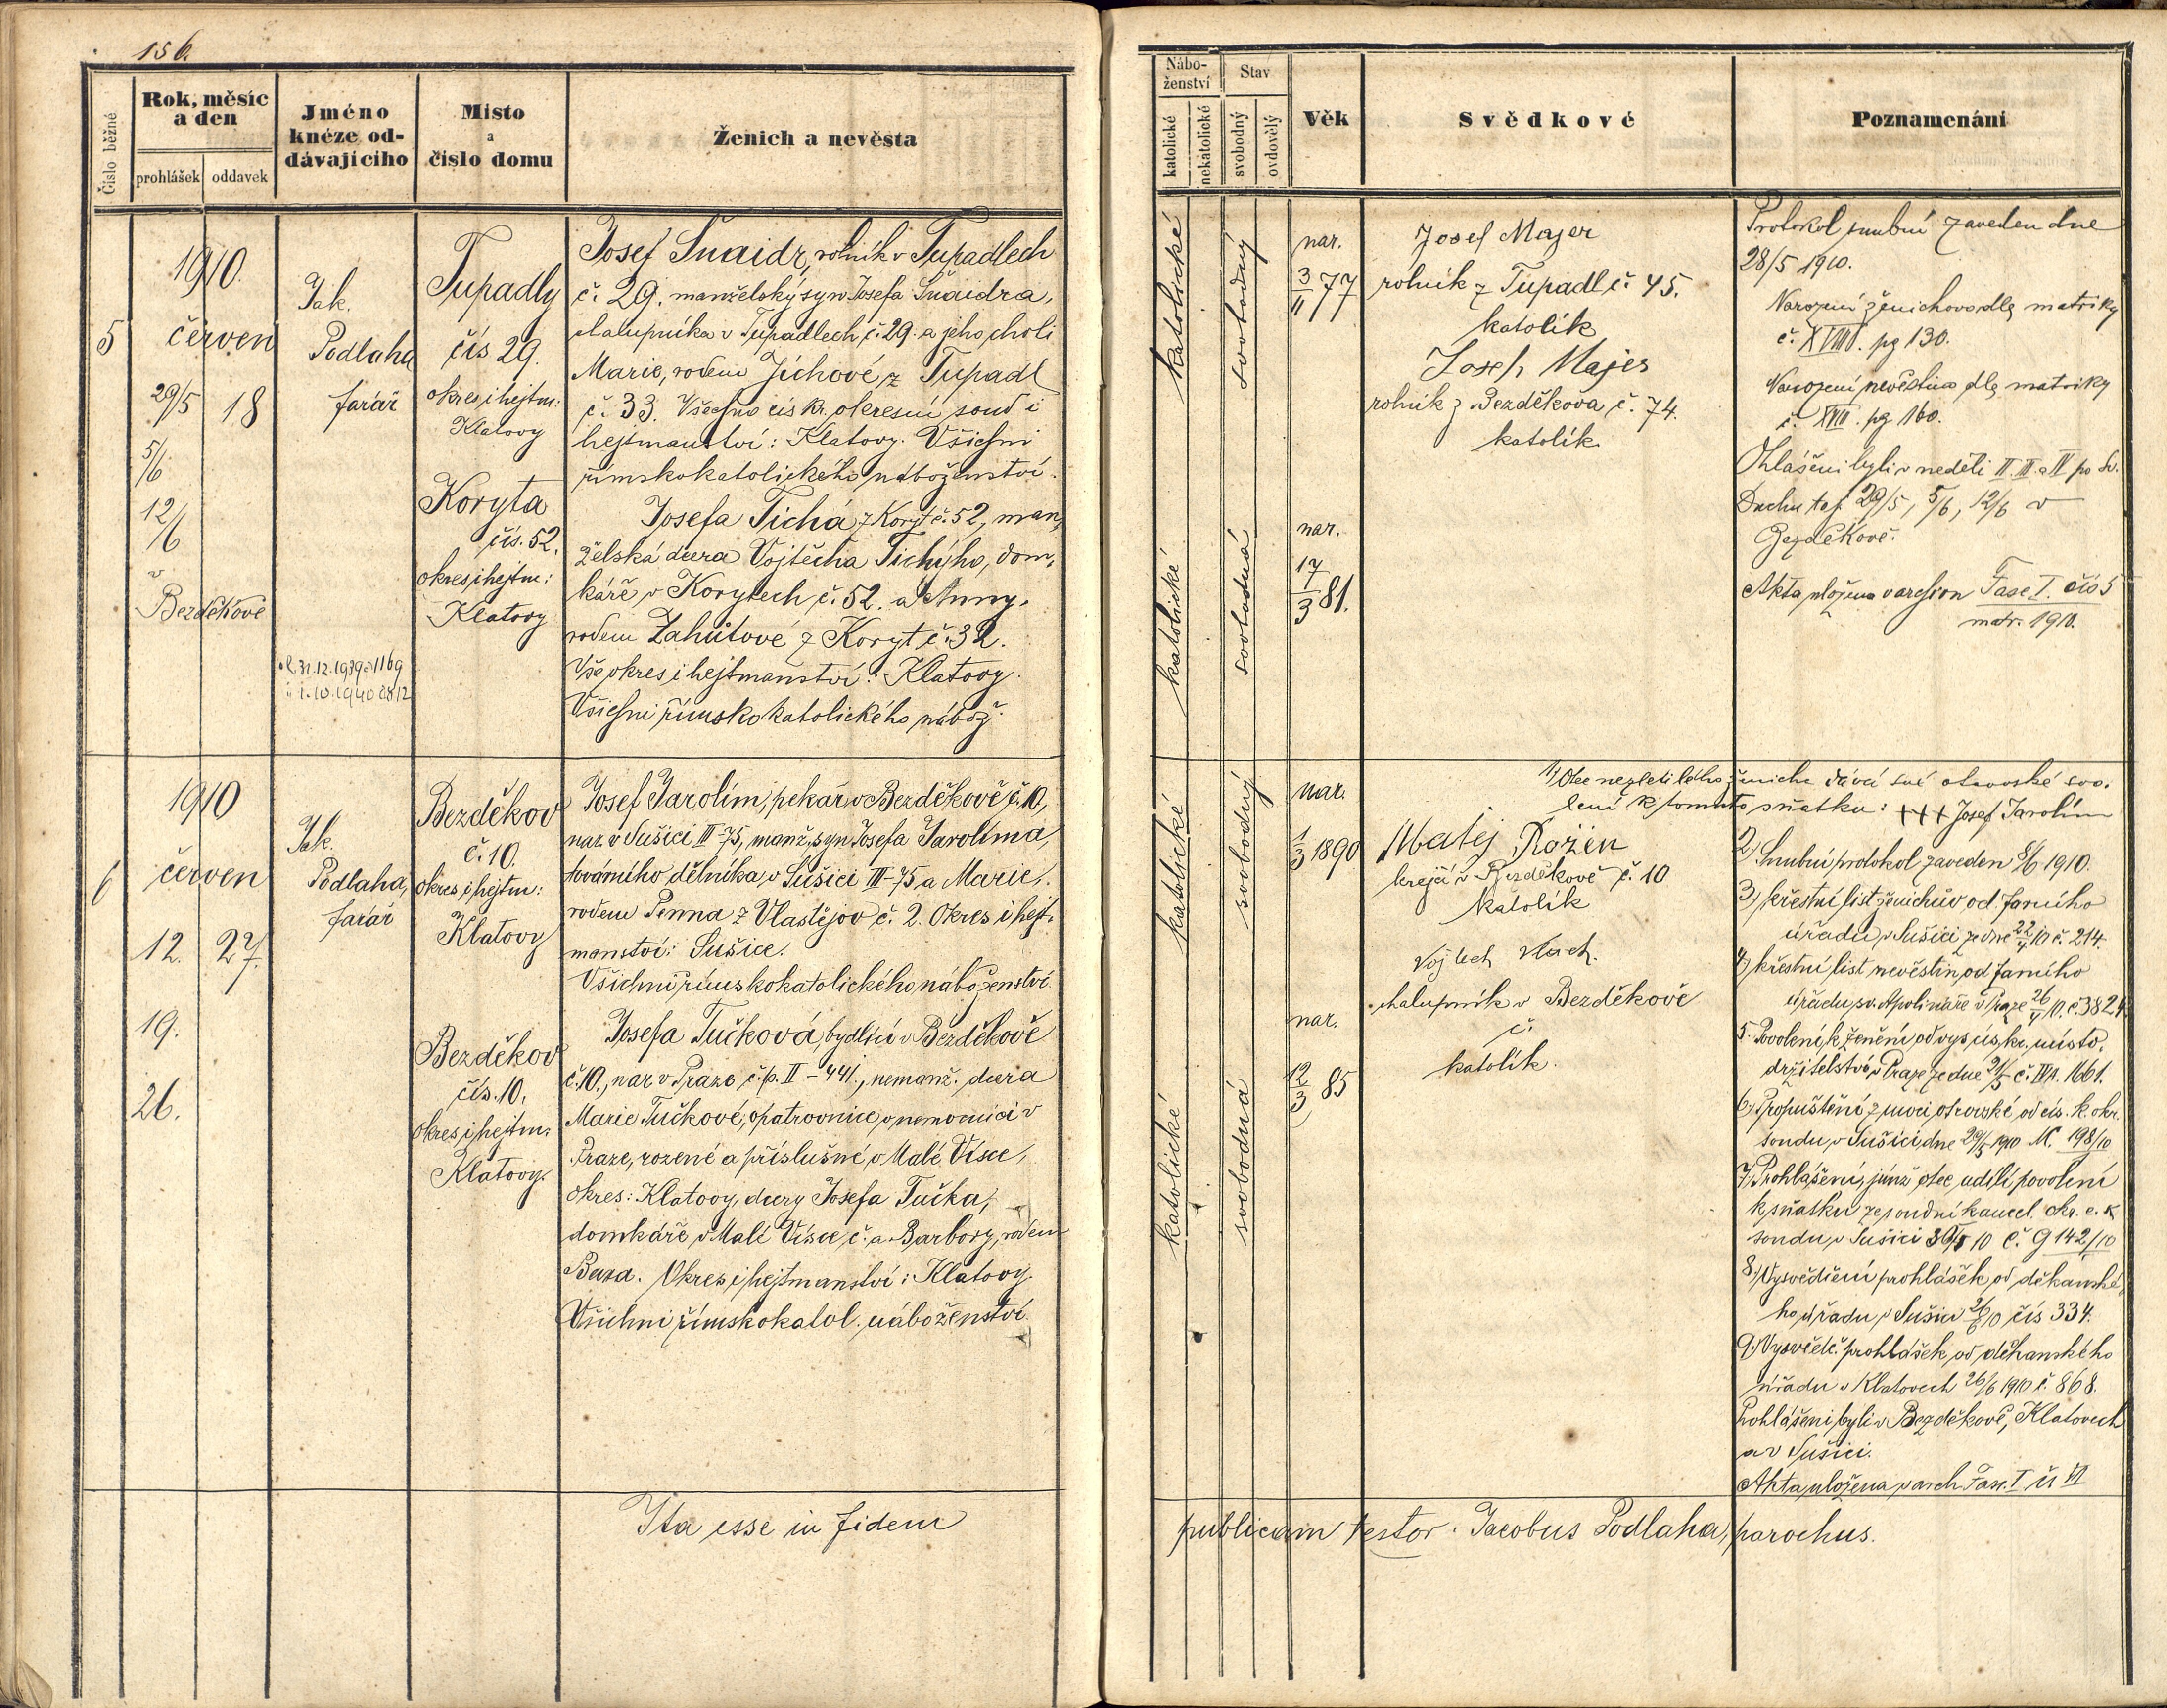 156.
Číslo běžné
Rok, měsíc
a den
prohlášek
oddavek
Jméno
knéze od-
dávajícího
Místo
a
číslo domu
Ženich a nevěsta
Nábo-
ženství
katolické
nekátolické
Stav
svobodný
ovdovělý
Věk
Svědkové
Poznamenání
5
1910.
červen
29/5 18
5/6
12/6
v
Bezděkově
Jak.
Podlaha
farář
31.12.1939 1169
1.10.1940 2812
Tupadly
čís 29.
okres i hejtm:
Klatovy
Koryta
čís. 52.
okres i hejtm:
Klatovy
Josef Šnaidr, rolník v Tupadlech
č. 29. manželský syn Josefa Šnaidra,
chalupníka v Tupadlech č. 29. a jeho choti
Marie, rodem Jíchové, z Tupadl
č. 33. Všechno cís kr. okresní soud i
hejtmanství: Klatovy. Všichni
římskokatolického náboženství.
Josefa Tichá z Koryt č. 52, man,
želská dcera Vojtěcha Tichýho, dom,
káře v Korytech č. 52. a Anny,
rodem Zahútové z Koryt č. 32.
Vše okres i hejtmanství: Klatovy.
Všichni římsko katolického nábož.
katolické
svobodný
nar.
3/11 77
katolické
svobodná
nar.
17/3 81.
Josef Majer
rolník z Tupadl č. 45.
katolík
Josef Majer
rolník z Bezděkova č. 74.
katolík.
Protokol snubní zaveden dne
28/5 1910.
Narození ženichovo dle matriky
č. XVIII. pg 130.
Narození nevěstino dle matriky
č. XVII. pg 160.
Ohlášeni byli v neděli II. III. a IV po Sv.
Duchu t.j. 29/5, 5/6, 12/6 v
Bezděkově.
Akta uložena v archivu Fasc I. čís 5
matr. 1910.
6
1910
červen
12. 27.
19.
26.
Jak.
Podlaha,
farář
Bezděkov
č. 10.
okres i hejtm:
Klatovy
Bezděkov
čís. 10.
okres i hejtm:
Klatovy.
Josef Jarolím, pekař v Bezděkově č. 10,
nar. v Sušici III-75, manž. syn Josefa Jarolíma,
továrního dělníka v Sušici III-75 a Marie,
rodem Penna z Vlastějov č. 2. Okres i hejt-
manství: Sušice.
Všichni římskokatolického náboženství.
Josefa Tučková, bydlící v Bezděkově
č. 10., nar. v Praze, č.p. II-441., nemanž. dcera
Marie Tučkové, opatrovnice v nemocnici v
Praze, rozené a příslušné v Malé Vísce,
okres: Klatovy, dcery Josefa Tučka,
domkáře v Malé Vísce, č. a Barbory, rodem
. Okres i hejtmanství: Klatovy.
Všichni římskokatol. náboženství.
katolické
svobodný
nar.
1/3 1890
katolické
svobodná
nar.
12/3 85
Matěj Rožen
krejčí v Bezděkově č. 10
katolík
Vojtech Vlach.
chalupník v Bezděkově
č.
katolík.
1) Otec nezletilého ženicha dává své otcovské svo,
lení k tomuto sňatku: +++ Josef Jarolím
2) Snubní protokol zaveden 8/6 1910.
3) křestní list ženichův od farního
úřadu v Sušici ze dne 22/4 10 č. 214.
4) křestní list nevěstin od farního
úřadu sv. Apolináře v Praze 26/4 10. č. 382
5. Povolení k ženění od vys. cís. kr. místo,
držitelství v Praze ze dne 21/5 č. 1661.
6) Propuštění z moci otcovské od cís. k. okr.
soudu v Sušici dne 29/5 1910 Nc. 198/10
7) Prohlášení, jímž otec udílí povolení
k sňatku ze soudní kancel. okr. c. k
soudu v Sušici 30/5 10 č. G 142/10
8) Vysvědčení prohlášek od děkanské,
ho úřadu v Sušici 26/6 10 čís 334.
9) Vysvědč. prohlášek od děkanského
úřadu v Klatovech 26/6 1910 č. 868.
Prohlášeni byli v Bezděkově, Klatovech
a v Sušici.
Akta uložena v arch. Fasc. I čís VI
Ita esse in fidem publicam testor. Jacobus Podlaha, parochus.